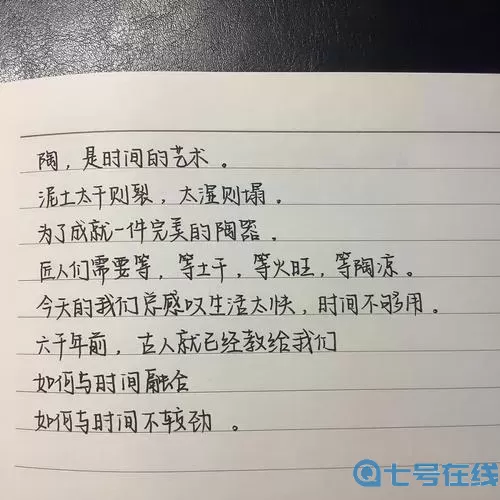 陶，是时间的艺术。
泥土太干则裂，太湿则塌。
为了成就一件完美的陶器。
匠人们需要等，等土干，等火旺，等陶凉。
今天的我们总感叹生活太快，时间不够用。
六千年前，古人就已经教给我们
如何与时间融合
如何与时间不较劲。
七号在线